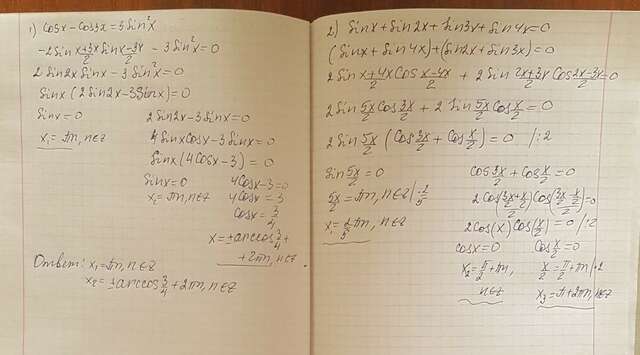 1) Cosx - Cos3x = 3Sin²x
-2Sin (x+3x)/2 Sin (x-3x)/2 - 3Sin²x = 0
2Sin2x Sinx - 3Sin²x = 0
Sinx (2Sin2x - 3Sinx) = 0
Sinx = 0 2Sin2x - 3Sinx = 0
x₁ = πn, n∈Z 4SinxCosx - 3Sinx = 0
Sinx (4Cosx - 3) = 0
Sinx = 0 4Cosx - 3 = 0
x₂ = πn, n∈Z 4Cosx = 3
Cosx = 3/4
x = ±arccos 3/4 +
+ 2πn, n∈Z
Ответ: x₁ = πn, n∈Z
x₂ = ±arccos 3/4 + 2πn, n∈Z
2) Sinx + Sin2x + Sin3x + Sin4x = 0
(Sinx + Sin4x) + (Sin2x + Sin3x) = 0
2Sin (x+4x)/2 Cos (x-4x)/2 + 2Sin (2x+3x)/2 Cos (2x-3x)/2 = 0
2Sin 5x/2 Cos 3x/2 + 2Sin 5x/2 Cos x/2 = 0
2Sin 5x/2 (Cos 3x/2 + Cos x/2) = 0 /:2
Sin 5x/2 = 0 Cos 3x/2 + Cos x/2 = 0
5x/2 = πn, n∈Z | ·2/5 2Cos((3x/2 + x/2)/2) Cos((3x/2 - x/2)/2) = 0
x₁ = 2/5 πn, n∈Z 2Cos(x) Cos(x/2) = 0 /:2
Cosx = 0 Cos x/2 = 0
x₂ = π/2 + πn, x/2 = π/2 + πn | ·2
n∈Z x₃ = π + 2πn, n∈Z